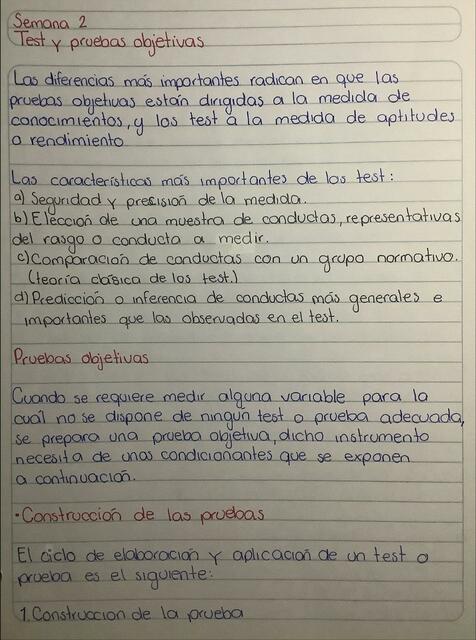 Semana 2
Test y pruebas objetivas
Las diferencias más importantes radican en que las
pruebas objetivas están dirigidas a la medida de
conocimientos, y los test a la medida de aptitudes
o rendimiento.
Las características más importantes de los test:
a) Seguridad y presisión de la medida.
b) Elección de una muestra de conductas, representativas
del rasgo o conducta a medir.
c) Comparación de conductas con un grupo normativo.
(teoría clásica de los test.)
d) Predicción o inferencia de conductas más generales e
importantes que las observadas en el test.
Pruebas objetivas
Cuando se requiere medir alguna variable para la
cuál no se dispone de ningún test o prueba adecuada,
se prepara una prueba objetiva, dicho instrumento
necesita de unas condicionantes que se exponen
a continuación.
· Construcción de las pruebas
El ciclo de elaboración y aplicación de un test o
prueba es el siguiente:
1. Construccion de la prueba